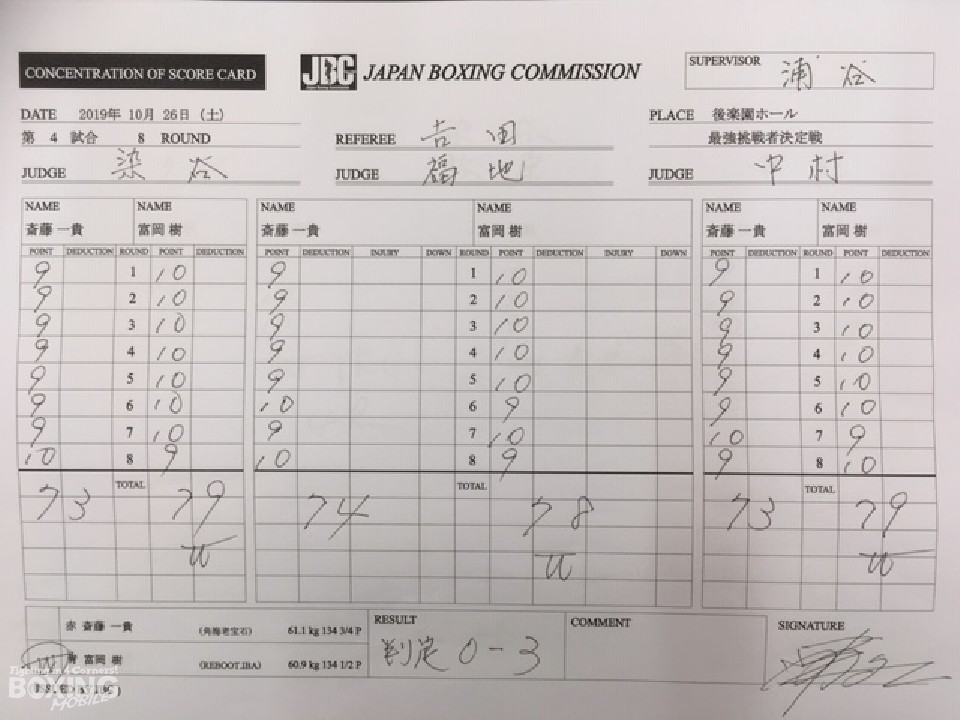 CONCENTRATION OF SCORE CARD
JBC JAPAN BOXING COMMISSION
SUPERVISOR 浦谷
DATE 2019年 10月 26日 (土)
PLACE 後楽園ホール
第 4 試合 8 ROUND
REFEREE 吉田
最強挑戦者決定戦
JUDGE 染谷
JUDGE 福地
JUDGE 中村
NAME NAME NAME NAME NAME NAME
斎藤 一貴 富岡 樹 斎藤 一貴 富岡 樹 斎藤 一貴 富岡 樹
POINT DEDUCTION ROUND POINT DEDUCTION POINT DEDUCTION INJURY DOWN ROUND POINT DEDUCTION INJURY DOWN POINT DEDUCTION ROUND POINT DEDUCTION
9 1 10 9 1 10 9 1 10
9 2 10 9 2 10 9 2 10
9 3 10 9 3 10 9 3 10
9 4 10 9 4 10 9 4 10
9 5 10 9 5 10 9 5 10
9 6 10 10 6 9 9 6 10
9 7 10 9 7 10 10 7 9
10 8 9 10 8 9 9 8 10
TOTAL TOTAL TOTAL
73 79 74 78 73 79
W W W
赤 斎藤 一貴 (角海老宝石) 61.1 kg 134 3/4 P
青 富岡 樹 (REBOOT.IBA) 60.9 kg 134 1/2 P
RESULT
判定 0-3
COMMENT
SIGNATURE
BOXING
MOBILE